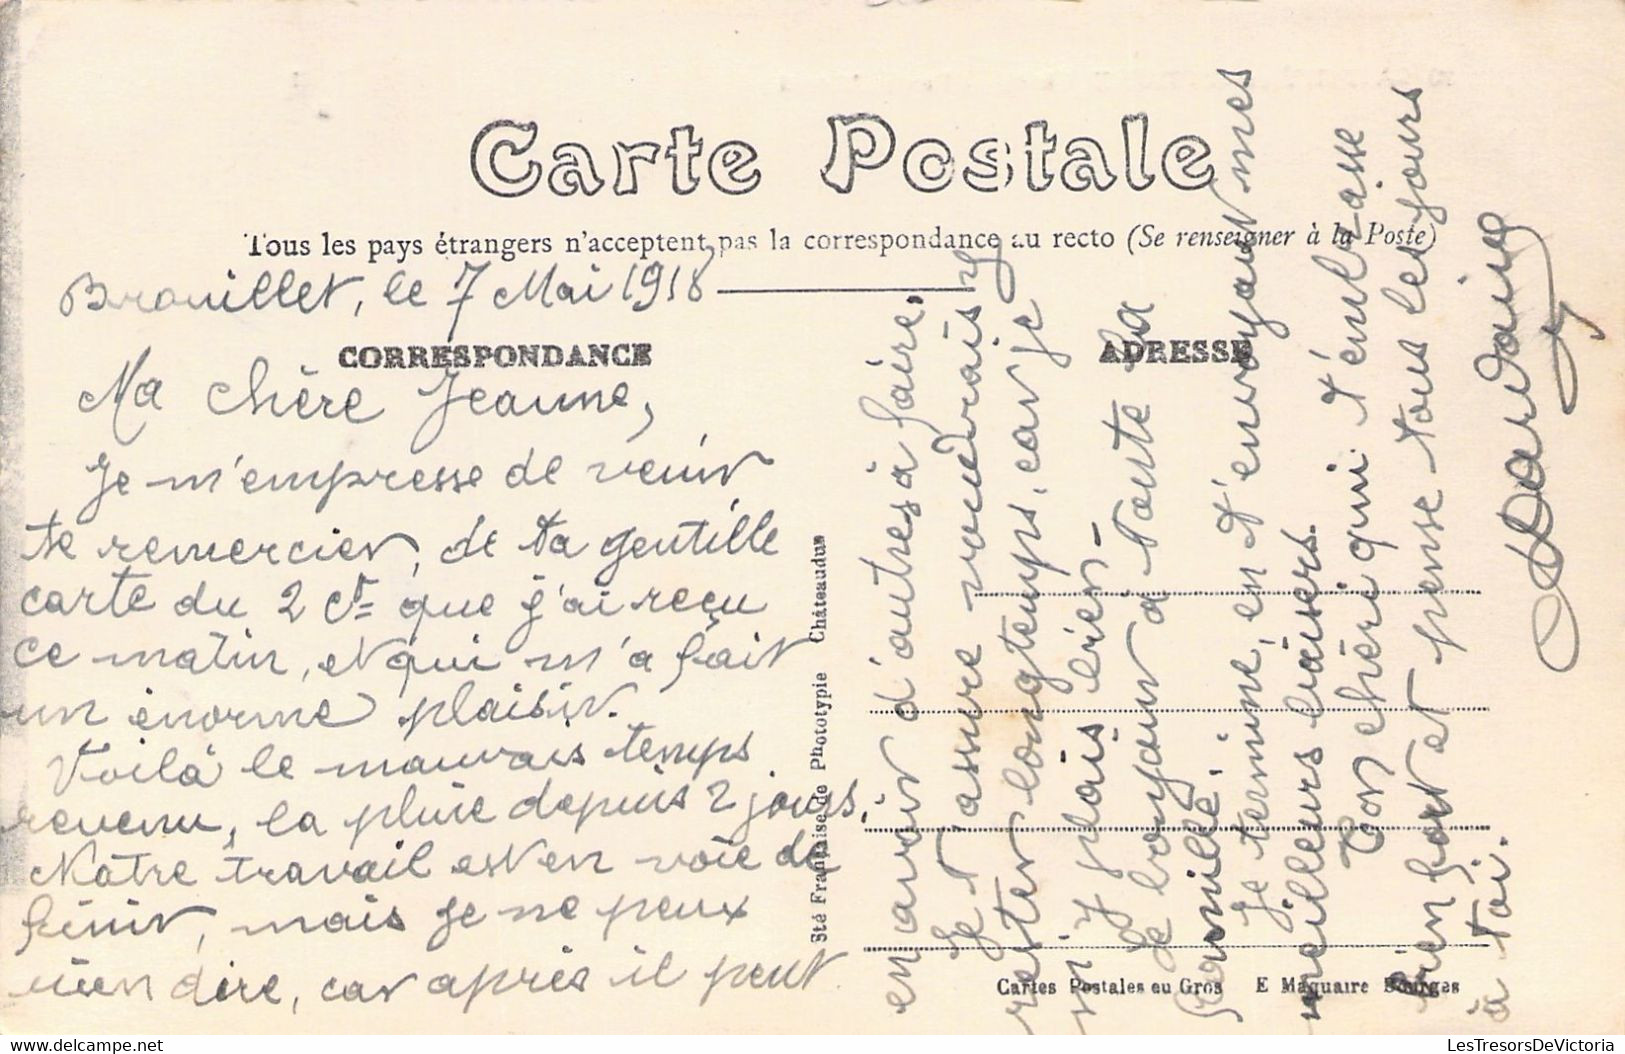 Carte Postale
Tous les pays étrangers n'acceptent pas la correspondance au recto (Se renseigner à la Poste)
Brouillet, le 7 Mai 1918
CORRESPONDANCE
ADRESSE
Ma chère Jeanne,
Je m'empresse de venir
te remercier, de ta gentille
carte du 2 ct= que j'ai reçu
ce matin, et qui m'a fait
un énorme plaisir.
Voilà le mauvais temps
revenu, la pluie depuis 2 jours.
Notre travail est en voie de
finir, mais je ne peux
rien dire, car après il peut
en avoir d'autres à faire,
Je t'assure voudrais y
rester longtemps, car je
m'y plais bien -
Le bonjour à toute la
famille.
Je termine, en t'envoyant mes
meilleurs baisers.
Ton chéri qui t'embrasse
bien fort et pense tous les jours
à toi.
Sté Française de Phototypie Châteaudun
Cartes Postales en Gros E Maquaire Bourges
LesTresorsDeVictoria
delcampe.net
LesTresorsDeVictoria